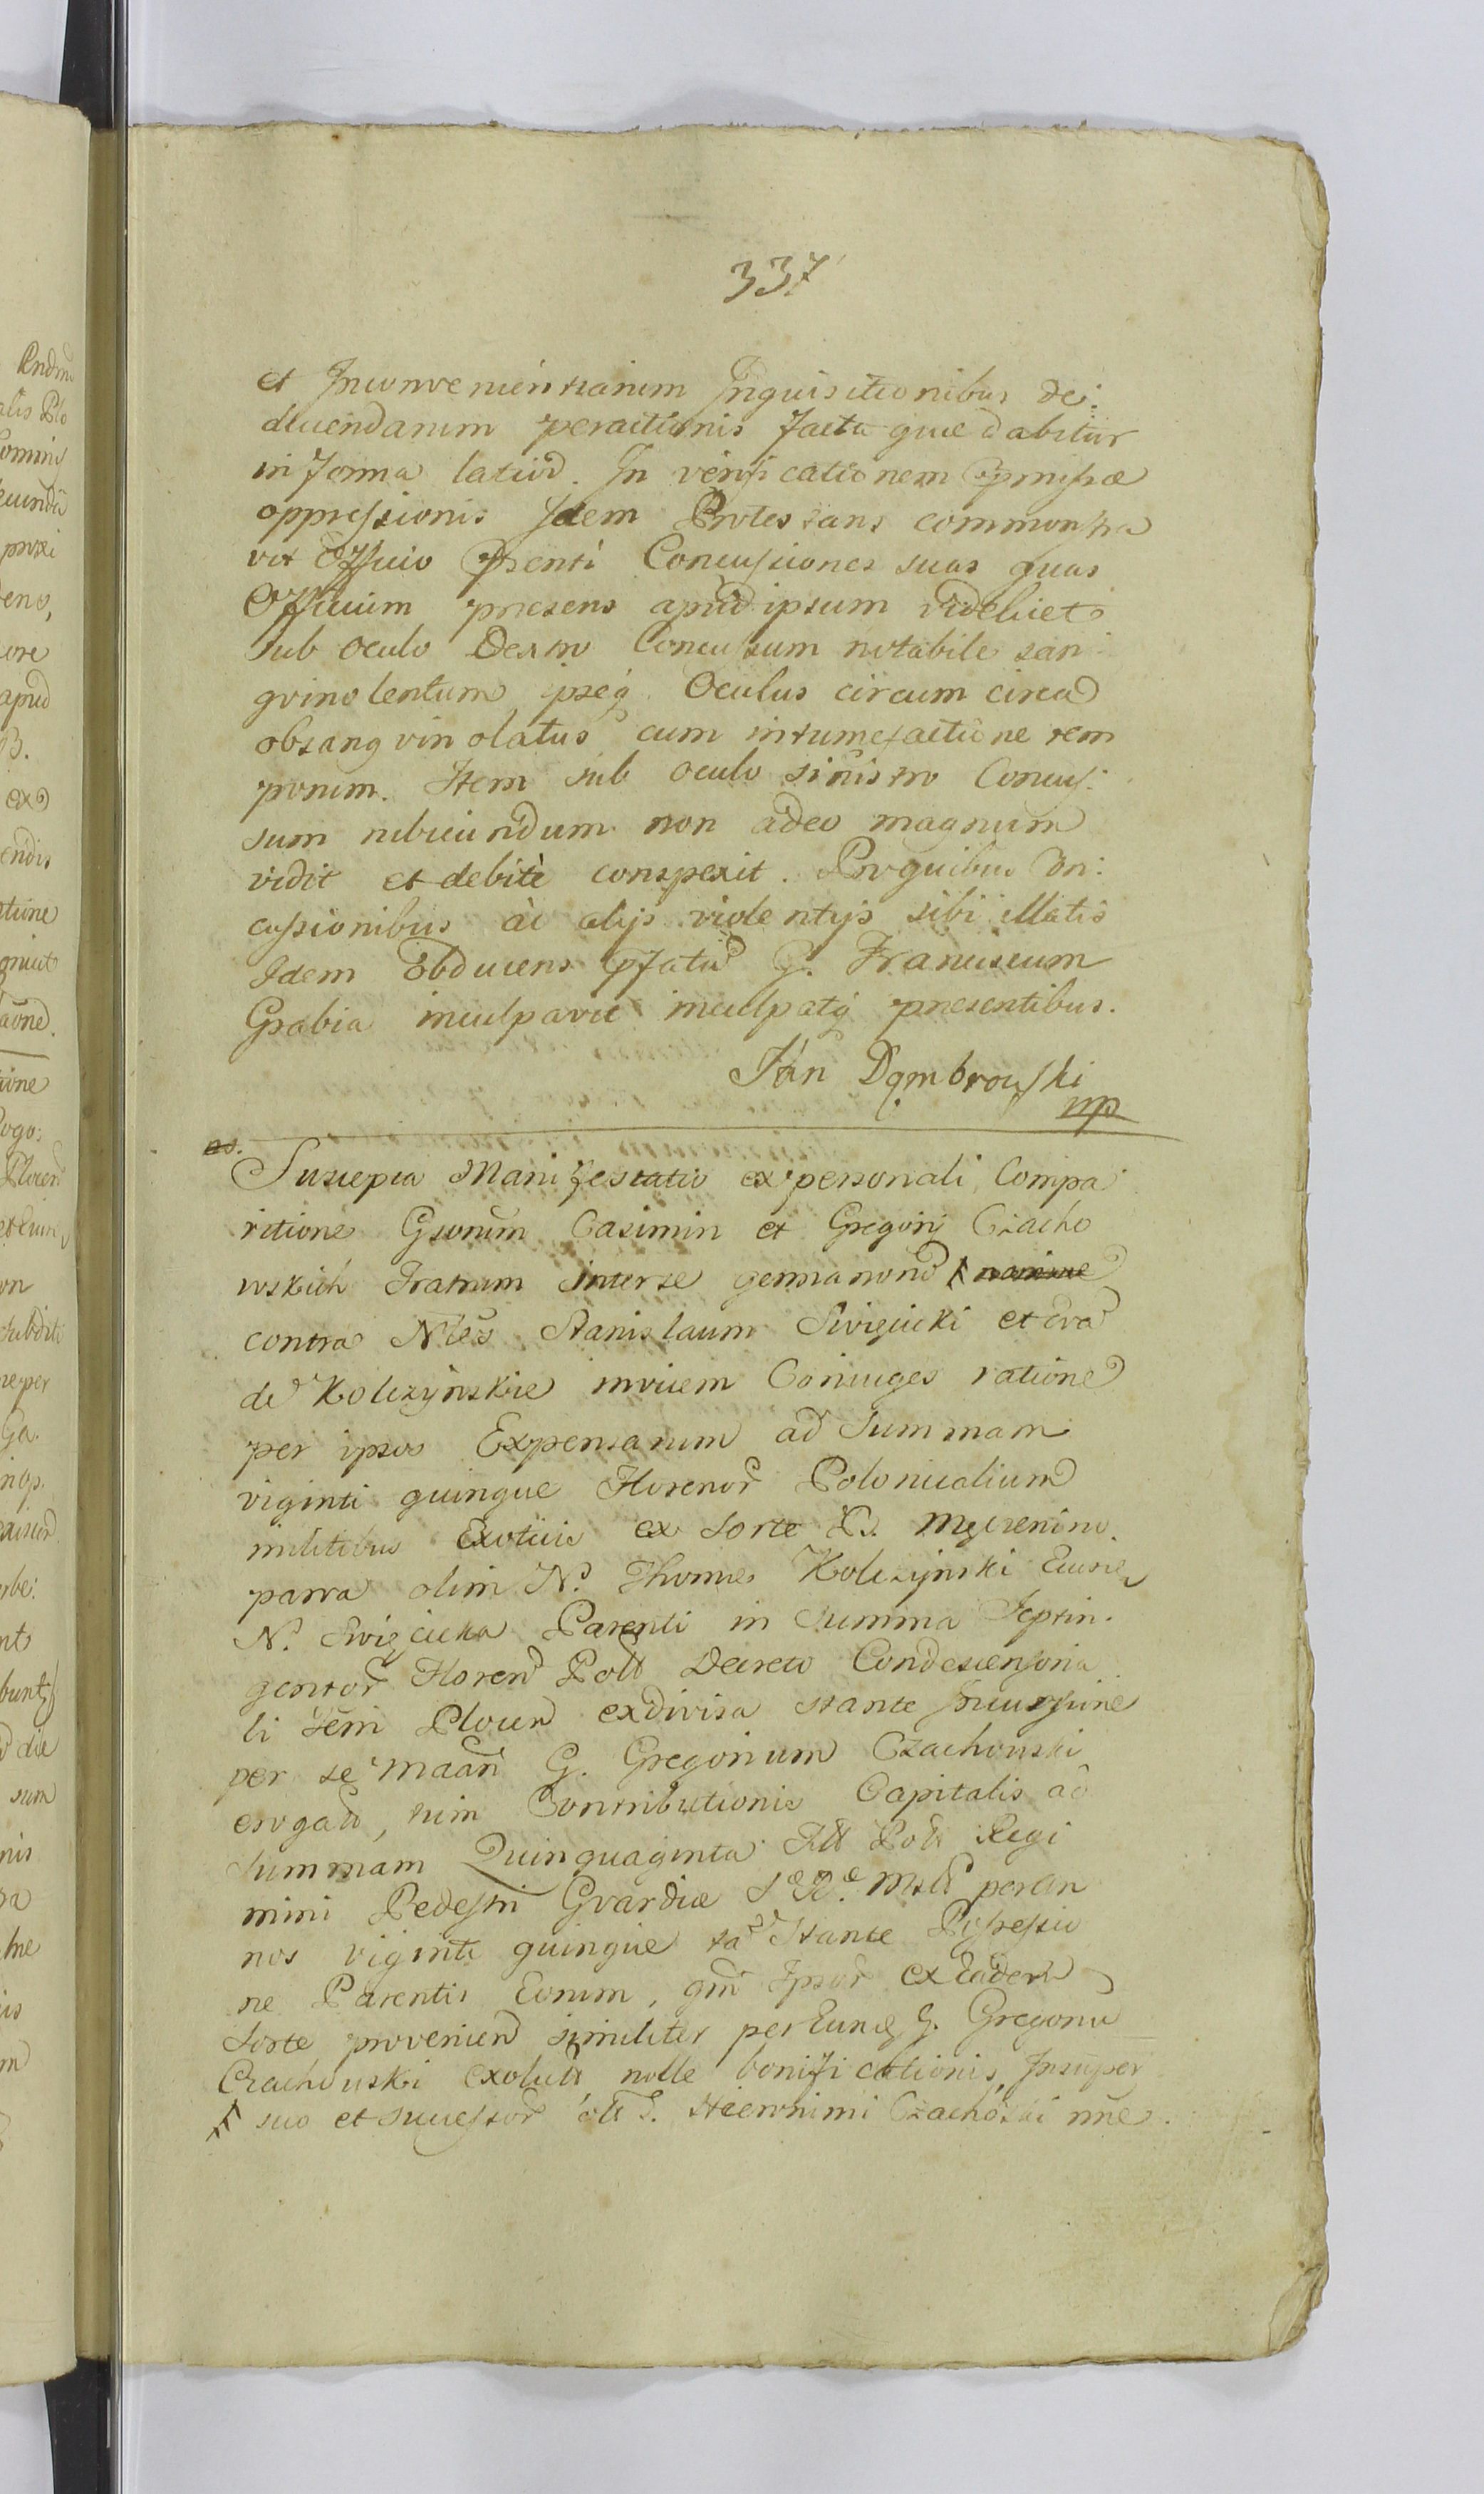 337
et Inconvenientiarum Inquisitionibus de:
ducendarum peractionis facta que dabitur
in forma latiori. In verificationem pmissæ
oppressionis Idem Protestans commonstra
vit Officio Psenti Concussiones suas quas
Officium presens apud ipsum videlicet
sub oculo Dextro Concussum notabile san:
gvinolentum ipseq Oculus circum circa
obsangvinolatus cum intumefactione tem
porum. Item sub oculo sinistro Concus:
sum rubicundum non adeo magnum
vidit et debite conspexit. Pro quibus Con:
cussionibus ac alijs violentijs sibi illatis
Idem Obducens pfatū G. Franciscum
Grabia inculpavit inculpatq presentibus.
Jan Dąmbrowski
mp
Suscepta Manifestatio ex personali Compa
ritione Gsorum Casimiri et Gregorij Czacho
wskich Fratrum interse germanorū nomine
contra Nles Stanislaum Swięcicki et
de Kolczyńskie invicem Coniuges ratione
per ipsos Expensarum ad Summam
viginti quinque Florenor Polonicalium
militibus Exoticis ex Sorte
parva olim N. Thomæ Kolczynski Eiusdē
N. Swięcicka Parenti in Summa Septin.
gentor Floren Poll Decreto Condescensoria
li Tērri Plocen exdivisa stante Incursione
per se Maān G. Gregorium Czachowski
erogatt, tum Contributionis Capitalis ad
Summam Quinquaginta Fll Poll Regi
mini Pedestri Gvardiæ S. R. Mtt per an
nos viginti quinque ta Stante Possessio
ne Parentis Eorum, qm Ipsor ex Eadem
Sorte provenien similiter per Eund G. Gregoriū
Czachowski exolutt nolle bonificationis, Insuper
suo et Successor olī G. Hieronimi Czachowski nne.